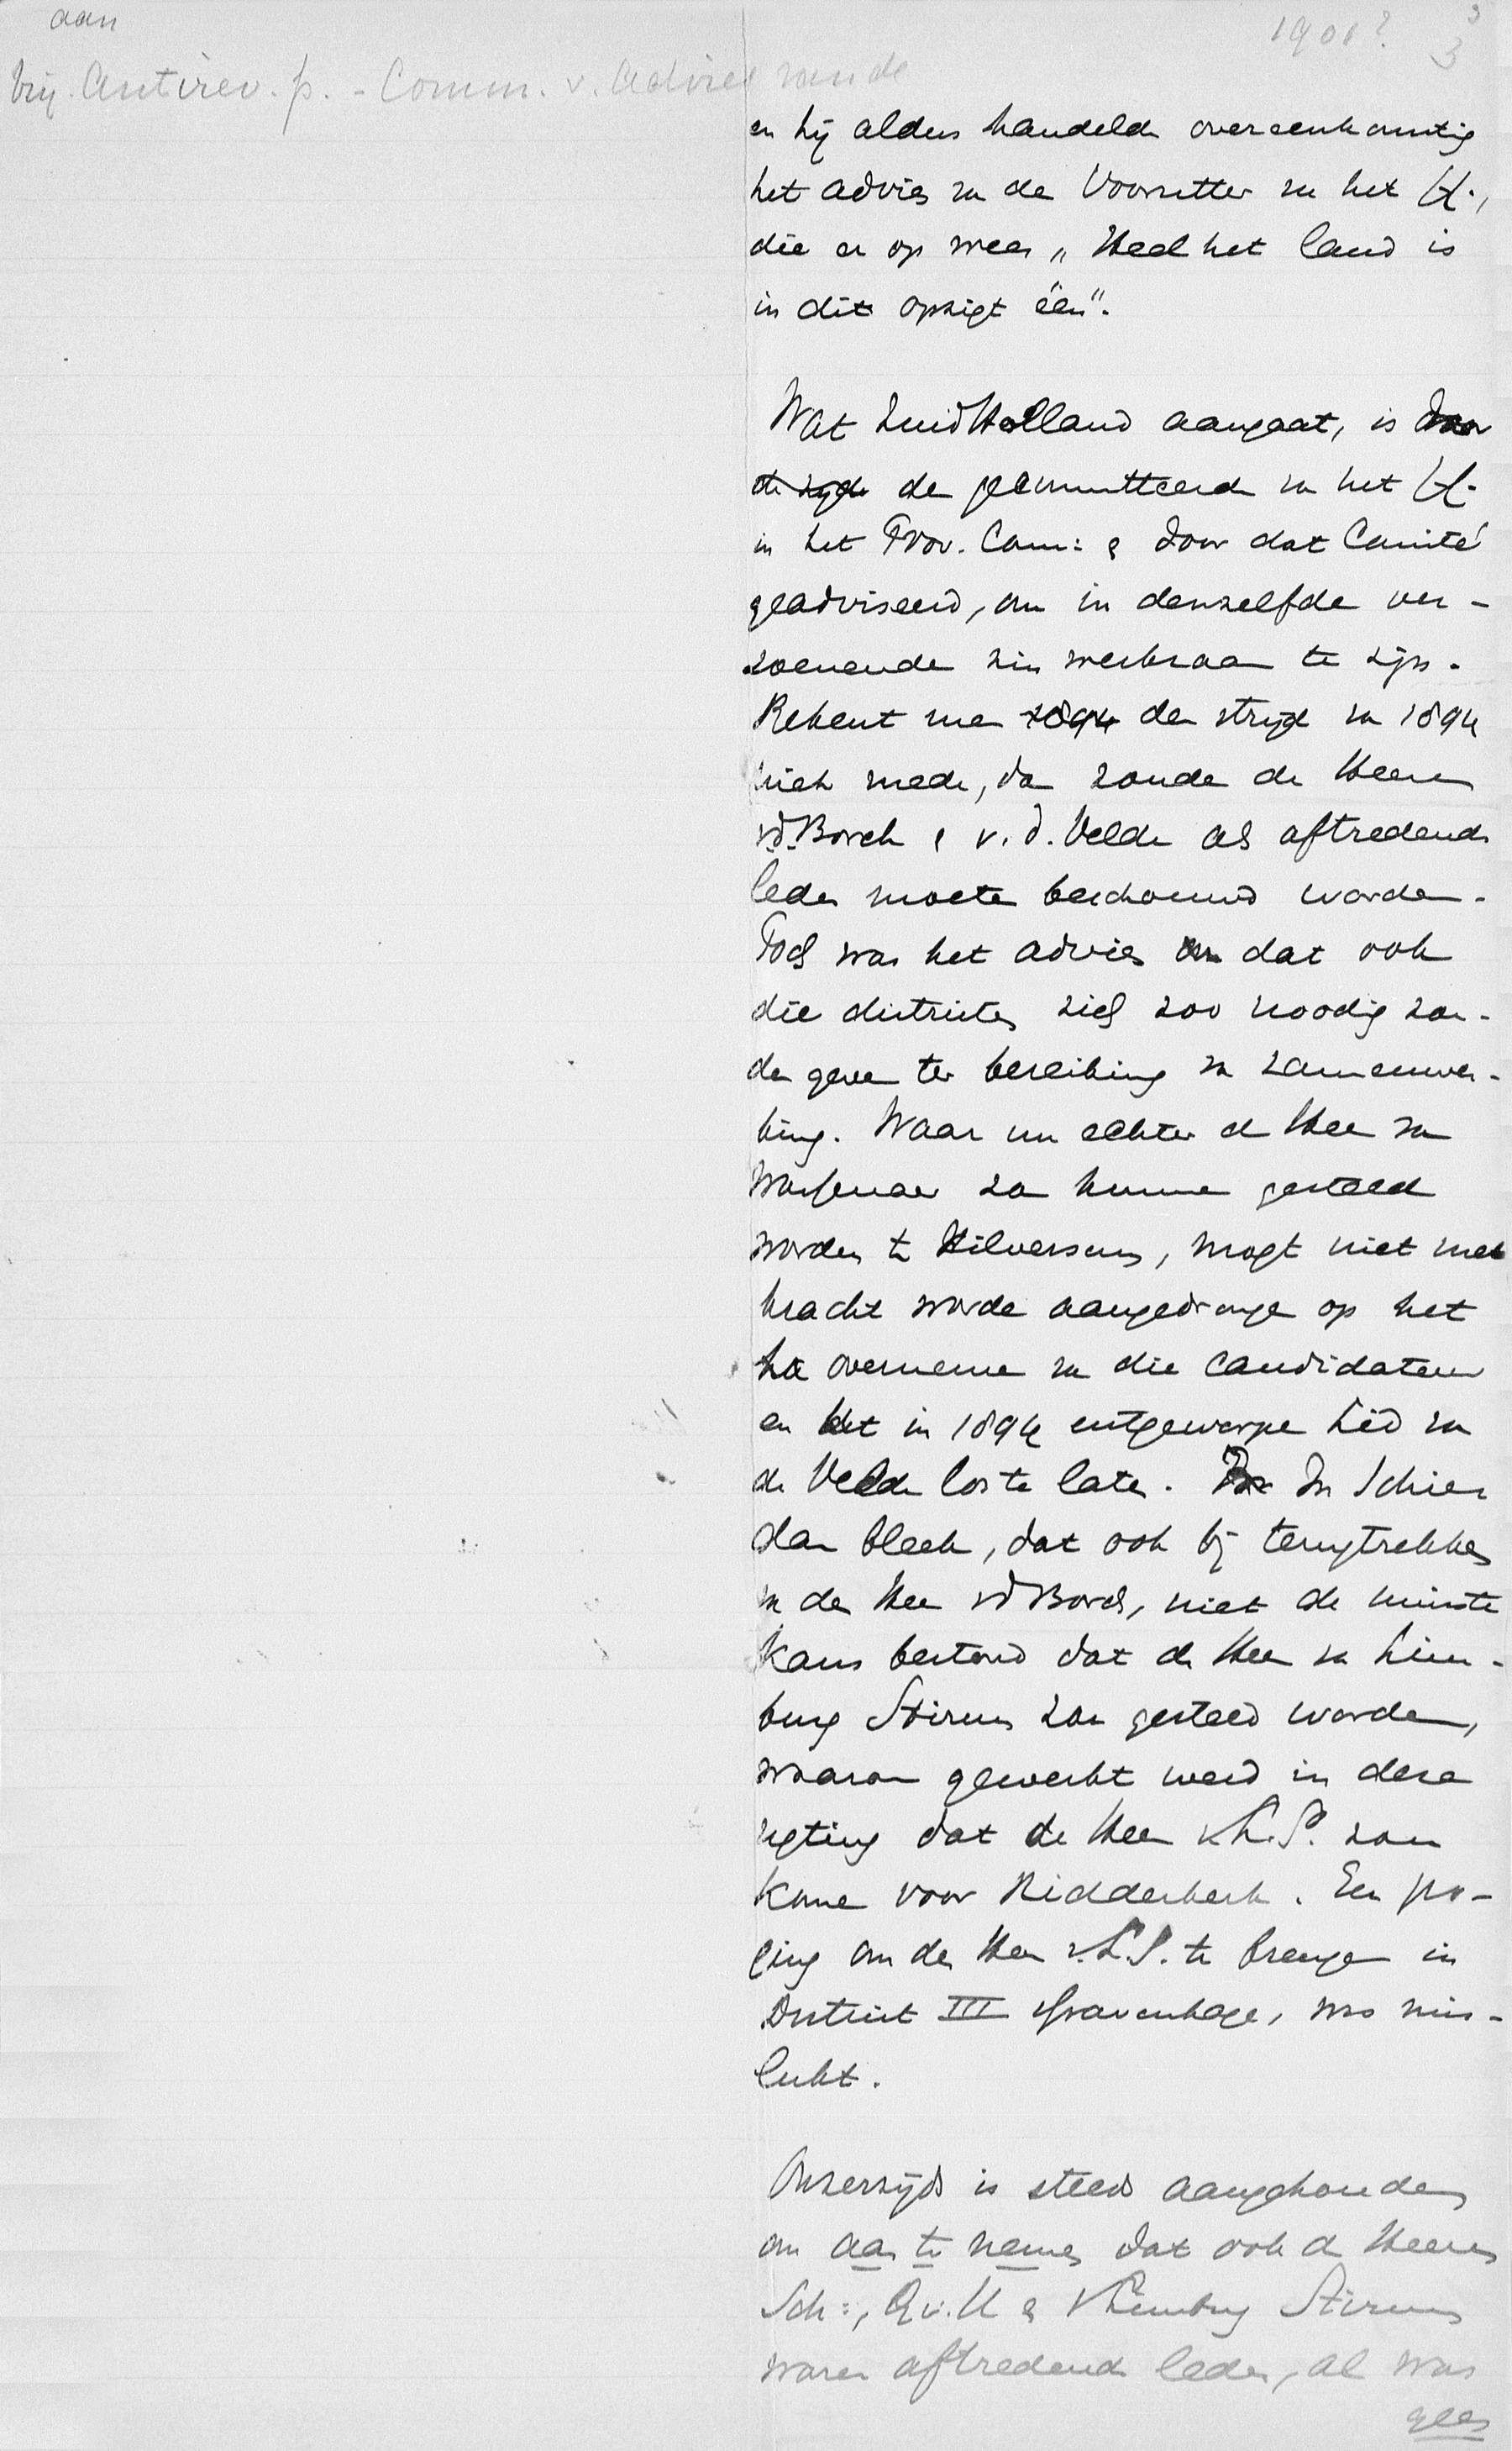 aan
bij Antirev. p. - Comm. v. Advies van de
1901?
3
3
en hij aldus handelde overeenkomstig
het advies van de Voorzitter van het CC.,
die er op wees „Heel het land is
in dit opzigt één".
Wat Zuid Holland aangaat, is door
de zijde de gecommitteerde van het CC.
in het Prov. Com: & door dat Comité
geadviseerd, om in denzelfde ver-
zoenende zin werkzaam te zijn.
Rekent men 1894 de strijd van 1894
niet mede, dan zoude de Heeren
vd Borch & v. d. Velde als aftredende
leden moeten beschouwd worden.
Toch was het advies om dat ook
die districten zich zoo noodig zou-
den geven ter bereiking van zamenwer-
king. Waar nu echter de Heer van
Wassenaer zou kunnen gesteld
worden te Hilversum, mogt niet met
kracht worden aangedrongen op het
het overnemen van die candidatuur
en het in 1894 uitgeworpen lid van
de Velde los te laten. In Schie
dam bleek, dat ook bij terugtrekken
van de Heer vd Borch, niet de minste
kans bestond dat de Heer van Lim-
burg Stirum zou gesteld worden,
waarom gewerkt werd in deze
rigting dat de Heer v L. S. zou
komen voor Ridderkerk. Een po-
ging om de Heer v. L. S. te brengen in
District III 's Gravenhage, was mis-
lukt.
Onzerzijds is steeds aangehouden
om aan te nemen dat ook de Heeren
Sch:, Q v. U & v Limburg Stirum
waren aftredende leden, al was
geen